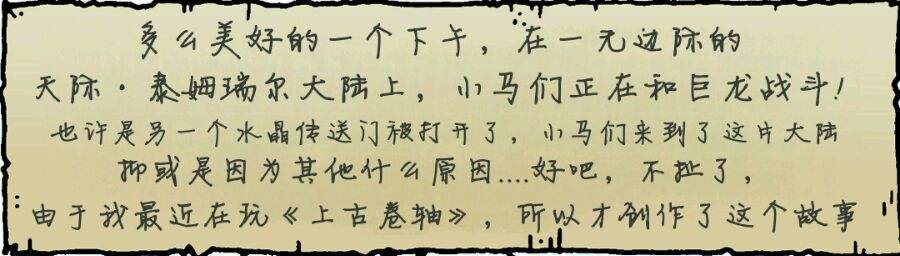 多么美好的一个下午，在一无边际的
天际·泰姆瑞尔大陆上，小马们正在和巨龙战斗！
也许是另一个水晶传送门被打开了，小马们来到了这片大陆
抑或是因为其他什么原因....好吧，不扯了，
由于我最近在玩《上古卷轴》，所以才创作了这个故事